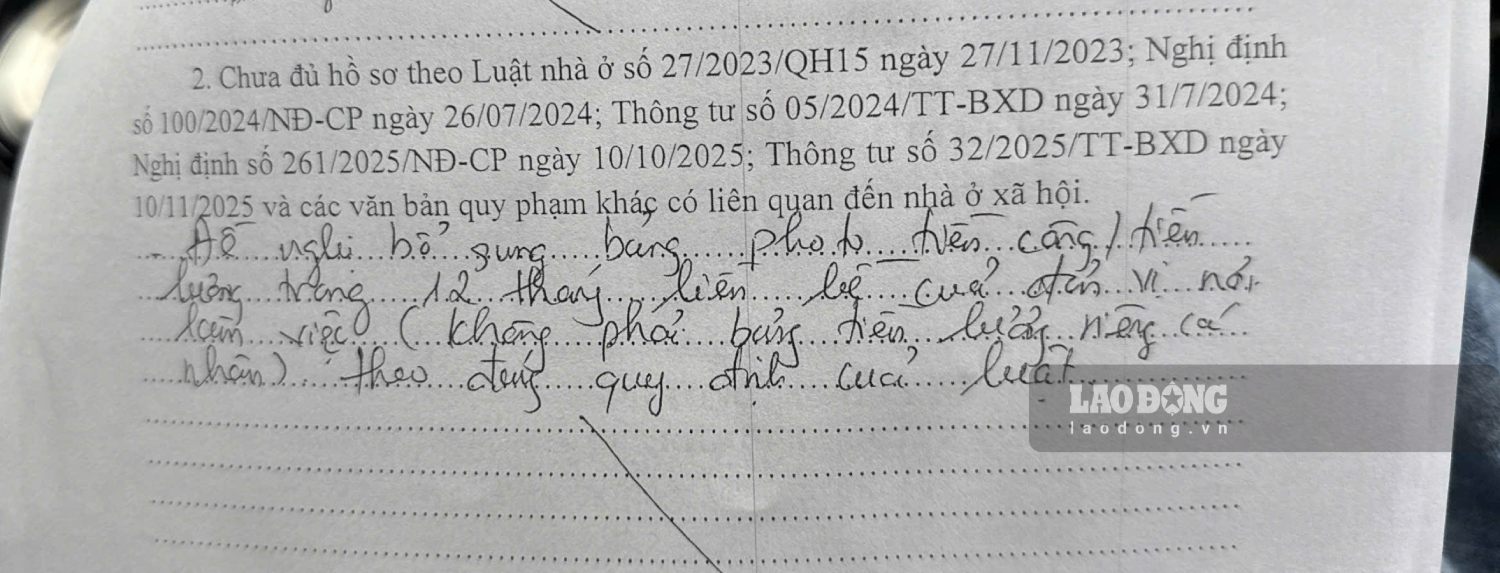 2. Chưa đủ hồ sơ theo Luật nhà ở số 27/2023/QH15 ngày 27/11/2023; Nghị định
số 100/2024/NĐ-CP ngày 26/07/2024; Thông tư số 05/2024/TT-BXD ngày 31/7/2024;
Nghị định số 261/2025/NĐ-CP ngày 10/10/2025; Thông tư số 32/2025/TT-BXD ngày
10/11/2025 và các văn bản quy phạm khác có liên quan đến nhà ở xã hội.
Đề nghị bổ sung bảng photo tiền công/tiền
lương trong 12 tháng liền kề của đơn vị nơi
làm việc (không phải bảng tiền lương riêng cá
nhân) theo đúng quy định của luật
LAO ĐỘNG
laodong.vn